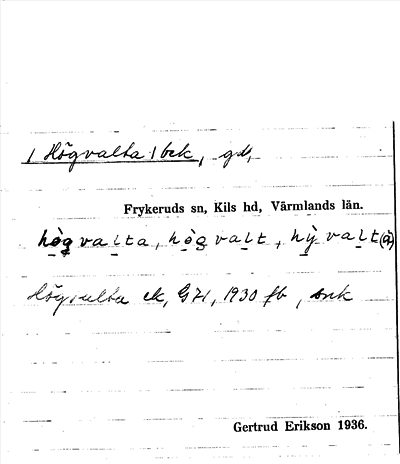 / Högvalta / bek, gd,
Frykeruds sn, Kils hd, Värmlands län.
hògvalta, hògvalt, hỳvalt(a)
Högvalta ek, G71, 1930 fb,
Gertrud Erikson 1936.